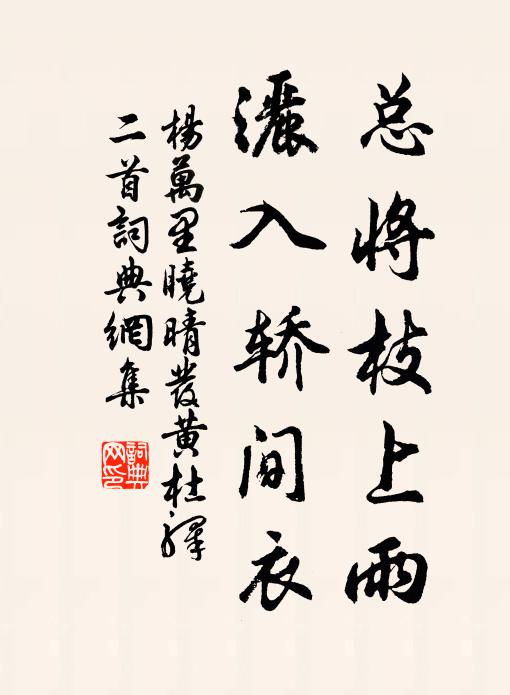 总将枝上雨
灑入轿间衣
楊萬里曉晴發黄杜驛
二首詞典網集
詞典網印